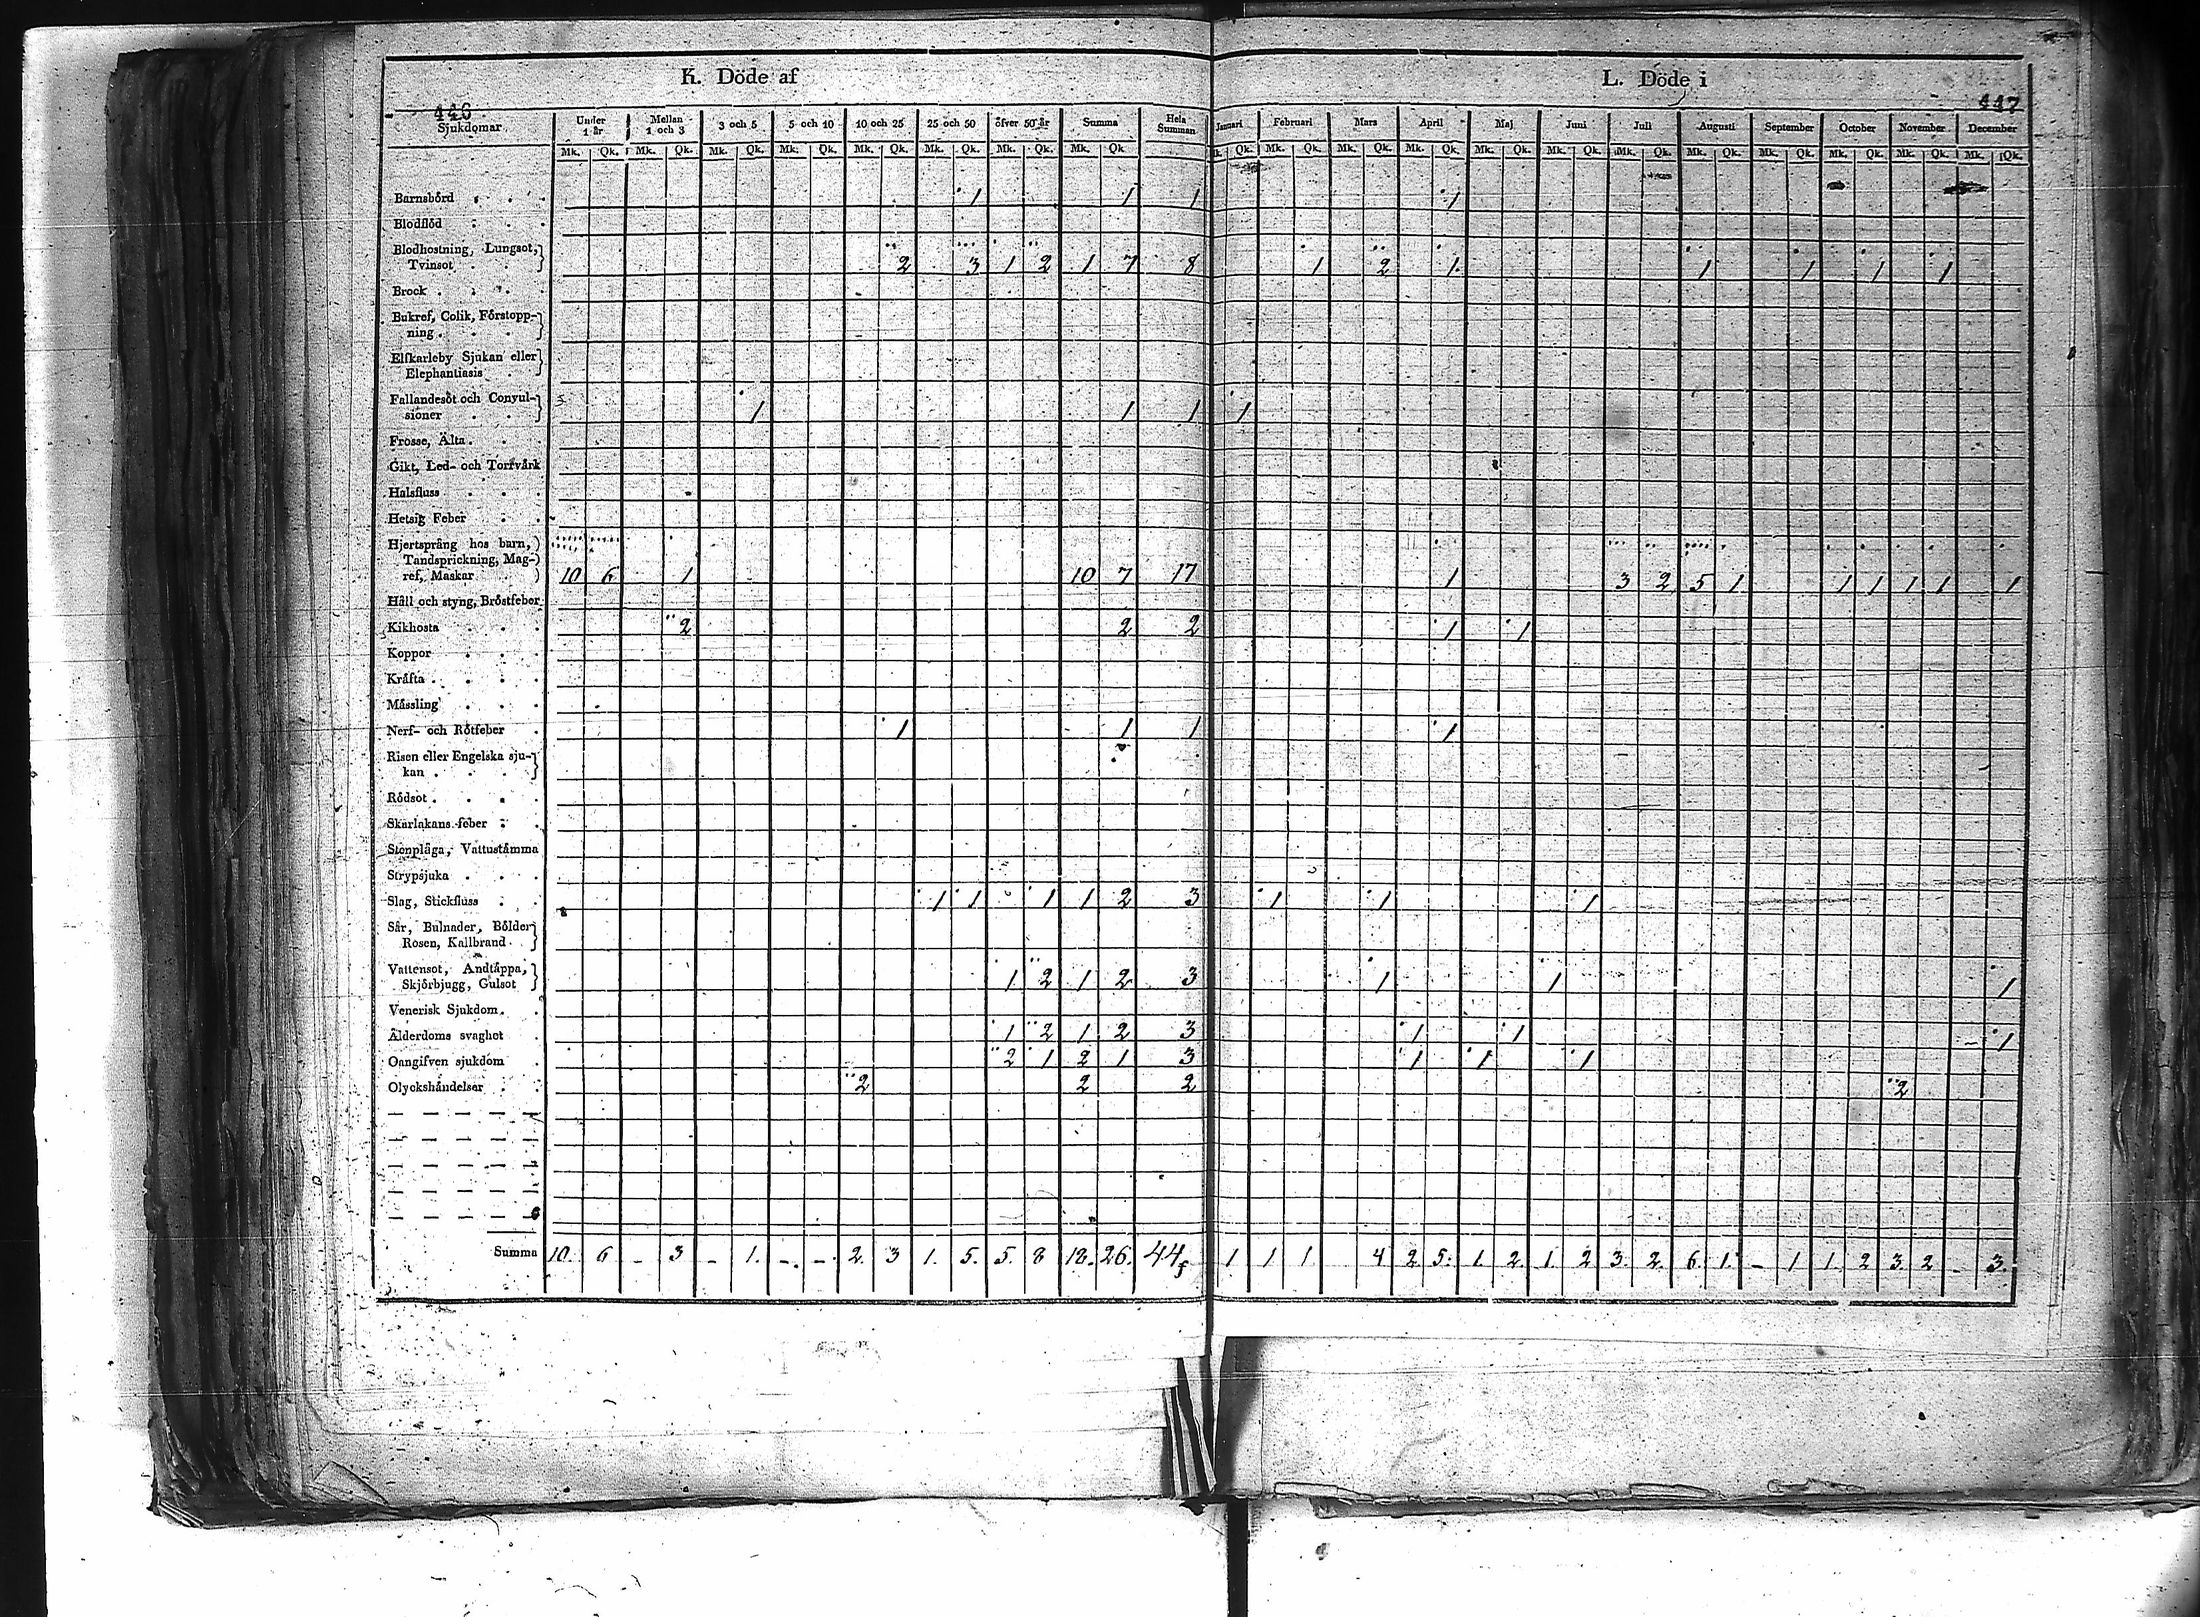 K. Döde af
L. Döde i
446
447
Sjukdomar
Under 1 år
Mellan 1 och 3
3 och 5
5 och 10
10 och 25
25 och 50
öfver 50 år
Summa
Hela Summan
Januari
Februari
Mars
April
Maj
Juni
Juli
Augusti
September
October
November
December
Mk. Qk. Mk. Qk. Mk. Qk. Mk. Qk. Mk. Qk. Mk. Qk. Mk. Qk. Mk. Qk.
Qk. Mk. Qk. Mk. Qk. Mk. Qk. Mk. Qk. Mk. Qk. Mk. Qk. Mk. Qk. Mk. Qk. Mk. Qk. Mk. Qk. Mk. Qk.
Barnsbörd 1 1 1 1
Blodflöd
Blodhostning, Lungsot,
Tvinsot 2 3 1 2 1 7 8 1 2 1 1 1 1 1
Brock
Bukref, Colik, Förstopp-
ning
Elfkarleby Sjukan eller
Elephantiasis
Fallandesot och Convul-
sioner 1 1 1 1
Frosse, Älta
Gikt, Led- och Torrvärk
Halsfluss
Hetsig Feber
Hjertsprång hos barn,
Tandsprickning, Mag-
ref, Maskar 10 6 1 10 7 17 1 3 2 5 1 1 1 1 1 1
Håll och styng, Bröstfeber
Kikhosta 2 2 2 1 1
Koppor
Kräfta
Mässling
Nerf- och Rötfeber 1 1 1 1
Risen eller Engelska sju-
kan
Rödsot
Skarlakans feber
Stenplåga, Vattustämma
Strypsjuka
Slag, Stickfluss 1 1 1 1 2 3 1 1 1
Sår, Bulnader, Bölder
Rosen, Kallbrand
Vattensot, Andtäppa,
Skjörbjugg, Gulsot 1 2 1 2 3 1 1 1
Venerisk Sjukdom
Ålderdoms svaghet 1 2 1 2 3 1 1 1
Oangifven sjukdom 2 1 2 1 3 1 1 1
Olyckshändelser 2 2 2 2
Summa 10. 6 - 3 - 1. - - 2. 3 1. 5. 5. 8 18. 26. 44 1 1 1 4 2 5. 1. 2. 1. 2 3. 2. 6. 1. - 1 1. 2 3. 2 - 3.